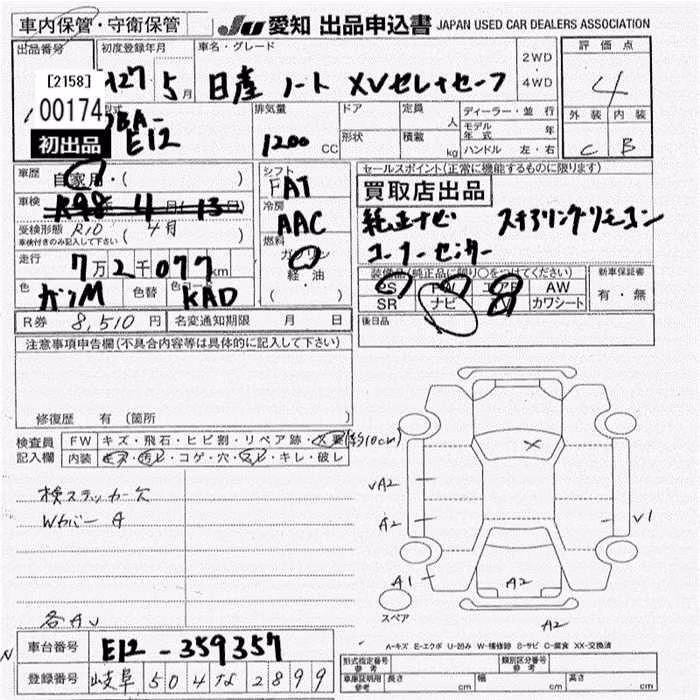 車内保管・守衛保管
JU 愛知 出品申込書 JAPAN USED CAR DEALERS ASSOCIATION
出品番号 初度登録年月 車名・グレード 2WD・4WD 評価点
[2158]
00174
初出品
H27 5月 日産 ノート XVセレ+セーフ
4
外装 内装
C B
型式 排気量 ドア 定員 人 ディーラー・並行
DBA-E12 1200 CC 形状 積載 kg モデル年式 年
ハンドル 左・右
車歴 自家用・( )
車検 R98年4月(13日)
受検形態 R10(4月
車検付きのみ記入して下さい
走行 7万2千077km
色 ガンM 色替 色コード KAD
シフト FAT
冷房 AAC
燃料 ガソリン
軽・油
( )
セールスポイント(正常に機能するものに限ります)
買取店出品
純正ナビ ステアリングリモコン
コーナーセンサー
装備品(純正品に限り○をつけてください)
PS PW エアB AW
SR ナビ 8 カワシート
新車保証書
有・無
後日品
R券 8,510円 名変通知期限 月 日
注意事項申告欄(不具合内容等は具体的に記入して下さい)
修復歴 有 (箇所
検査員記入欄 FW キズ・飛石・ヒビ割・リペア跡・交要(約10cm)
内装 キズ・汚レ・コゲ・穴・スレ・キレ・破レ
検ステッカー欠
Wカバー A
各AU
X
A2
A2
A1
A2
V1
A2
スペア
A-キズ E-エクボ U-凹み W-補修跡 S-サビ C-腐食 XX-交換済
車台番号 E12-359357
登録番号 岐阜 504 な 2899
型式指定番号 参考 類別区分番号 参考
車庫証明用 参考 長さ cm 幅 cm 高さ cm